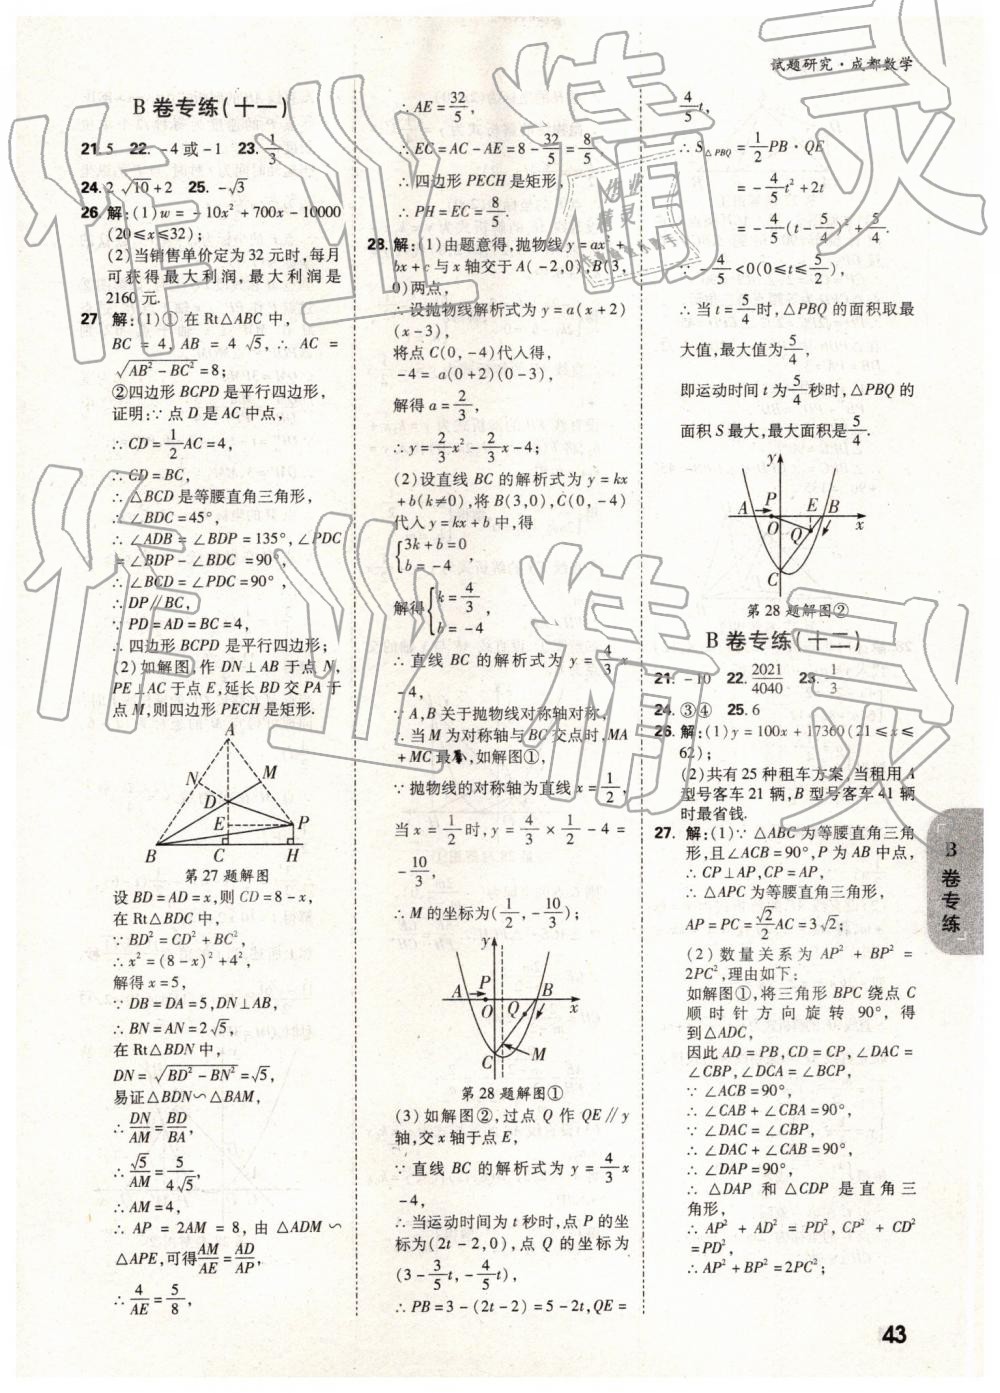 试题研究·成都数学
B 卷专练(十一)
21. 5 22. -4 或 -1 23. 1/3
24. 2√10+2 25. -√3
26. 解:(1)w = -10x²+700x-10000
(20≤x≤32);
(2)当销售单价定为 32 元时,每月
可获得最大利润,最大利润是
2160 元.
27. 解:(1)①在 Rt△ABC 中,
BC = 4, AB = 4√5, ∴ AC =
√(AB²-BC²)=8;
②四边形 BCPD 是平行四边形,
证明:∵点 D 是 AC 中点,
∴CD=1/2AC=4,
∴CD=BC,
∴△BCD 是等腰直角三角形,
∴∠BDC=45°,
∴∠ADB=∠BDP=135°,∠PDC
=∠BDP-∠BDC=90°,
∴∠BCD=∠PDC=90°,
∴DP∥BC,
∵PD=AD=BC=4,
∴四边形 BCPD 是平行四边形;
(2)如解图,作 DN⊥AB 于点 N,
PE⊥AC 于点 E,延长 BD 交 PA 于
点 M,则四边形 PECH 是矩形.
A
N
M
D
E
P
B
C
H
第 27 题解图
设 BD=AD=x,则 CD=8-x,
在 Rt△BDC 中,
∵BD²=CD²+BC²,
∴x²=(8-x)²+4²,
解得 x=5,
∵DB=DA=5,DN⊥AB,
∴BN=AN=2√5,
在 Rt△BDN 中,
DN=√(BD²-BN²)=√5,
易证△BDN∽△BAM,
∴DN/AM=BD/BA,
∴√5/AM=5/4√5,
∴AM=4,
∴AP=2AM=8,由△ADM∽
△APE,可得AM/AE=AD/AP,
∴4/AE=5/8,
∴AE=32/5,
∴EC=AC-AE=8-32/5=8/5,
∵四边形 PECH 是矩形,
∴PH=EC=8/5.
28. 解:(1)由题意得,抛物线 y=ax²+
bx+c 与 x 轴交于 A(-2,0),B(3,
0)两点,
∴设抛物线解析式为 y=a(x+2)
(x-3),
将点 C(0,-4)代入得,
-4=a(0+2)(0-3),
解得 a=2/3,
∴y=2/3x²-2/3x-4;
(2)设直线 BC 的解析式为 y=kx
+b(k≠0),将 B(3,0),C(0,-4)
代入 y=kx+b 中,得
{3k+b=0
b=-4,
解得{k=4/3,
b=-4
∴直线 BC 的解析式为 y=4/3x
-4,
∵A,B 关于抛物线对称轴对称,
∴当 M 为对称轴与 BC 交点时,MA
+MC 最小,如解图①,
∵抛物线的对称轴为直线 x=1/2,
当 x=1/2时,y=4/3×1/2-4=
-10/3,
∴M 的坐标为(1/2,-10/3);
y
A
P
O
Q
B
x
C
M
第 28 题解图①
(3)如解图②,过点 Q 作 QE∥y
轴,交 x 轴于点 E,
∵直线 BC 的解析式为 y=4/3x
-4,
∴当运动时间为 t 秒时,点 P 的坐
标为(2t-2,0),点 Q 的坐标为
(3-3/5t,-4/5t),
∴PB=3-(2t-2)=5-2t,QE=
4/5t,
∴S△PBQ=1/2PB·QE
=-4/5t²+2t
=-4/5(t-5/4)²+5/4.
∵-4/5<0(0≤t≤5/2),
∴当 t=5/4时,△PBQ 的面积取最
大值,最大值为5/4,
即运动时间 t 为5/4秒时,△PBQ 的
面积 S 最大,最大面积是5/4.
y
A
P
O
Q
E
B
x
C
第 28 题解图②
B 卷专练(十二)
21. -10 22. 2021/4040 23. 1/3
24. ③④ 25. 6
26. 解:(1)y=100x+17360(21≤x≤
62);
(2)共有 25 种租车方案,当租用 A
型号客车 21 辆,B 型号客车 41 辆
时最省钱.
27. 解:(1)∵△ABC 为等腰直角三角
形,且∠ACB=90°,P 为 AB 中点,
∴CP⊥AP,CP=AP,
∴△APC 为等腰直角三角形,
AP=PC=√2/2AC=3√2;
(2)数量关系为 AP²+BP²=
2PC²,理由如下:
如解图①,将三角形 BPC 绕点 C
顺时针方向旋转 90°,得
到△ADC,
因此 AD=PB,CD=CP,∠DAC=
∠CBP,∠DCA=∠BCP,
∵∠ACB=90°,
∴∠CAB+∠CBA=90°,
∵∠DAC=∠CBP,
∴∠DAC+∠CAB=90°,
∴∠DAP=90°,
∴△DAP 和△CDP 是直角三
角形,
∴AP²+AD²=PD²,CP²+CD²
=PD²,
∴AP²+BP²=2PC²;
B 卷专练
43
作业精灵
作业精灵
作业
精灵